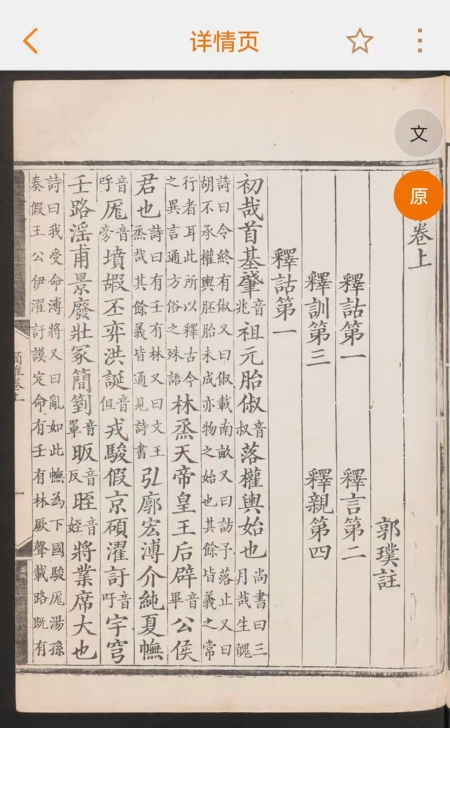 详情页
文
原
卷上
郭璞註
釋詁第一 釋言第二
釋訓第三 釋親第四
釋詁第一
初哉首基肈音兆祖元胎俶音叔落權輿始也尚書曰三月哉生魄
詩曰令終有俶又曰俶載南畝又曰訪予落止又曰
胡不承權輿胚胎未成亦物之始也其餘皆義之常
行者耳此所以釋古今之異言通方俗之殊語林烝天帝皇王后辟音畢公侯
君也詩曰有壬有林又曰文王烝哉其餘義皆通見詩書弘廓宏溥介純夏幠
音呼厖音旁墳嘏丕弈洪誕音但戎駿假京碩濯訏音吁宇穹
壬路淫甫景廢壯冢簡箌音罩昄音反晊音姪將業席大也
詩曰我受命溥將又曰亂如此幠為下國駿厖湯孫
奏假王公伊濯訏謨定命有壬有林厥聲載路既有
爾雅卷上